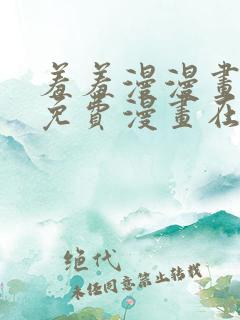 羞羞漫漫畫
免費漫畫在
绝代
未经同意禁止转载